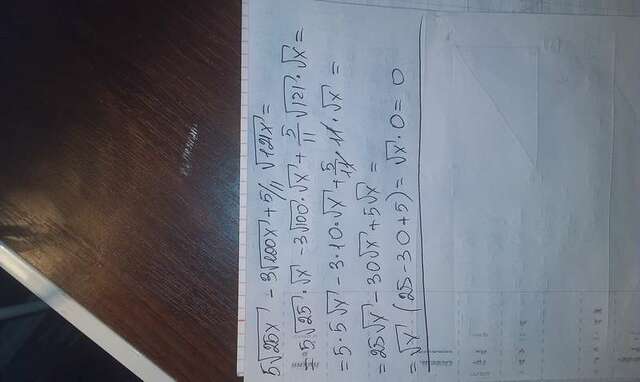 5√25x - 3√100x + 5/11 √121x =
= 5√25 · √x - 3√100 · √x + 5/11 √121 · √x =
= 5 · 5√x - 3 · 10 · √x + 5/11 · 11 · √x =
= 25√x - 30√x + 5√x =
= √x · (25 - 30 + 5) = √x · 0 = 0